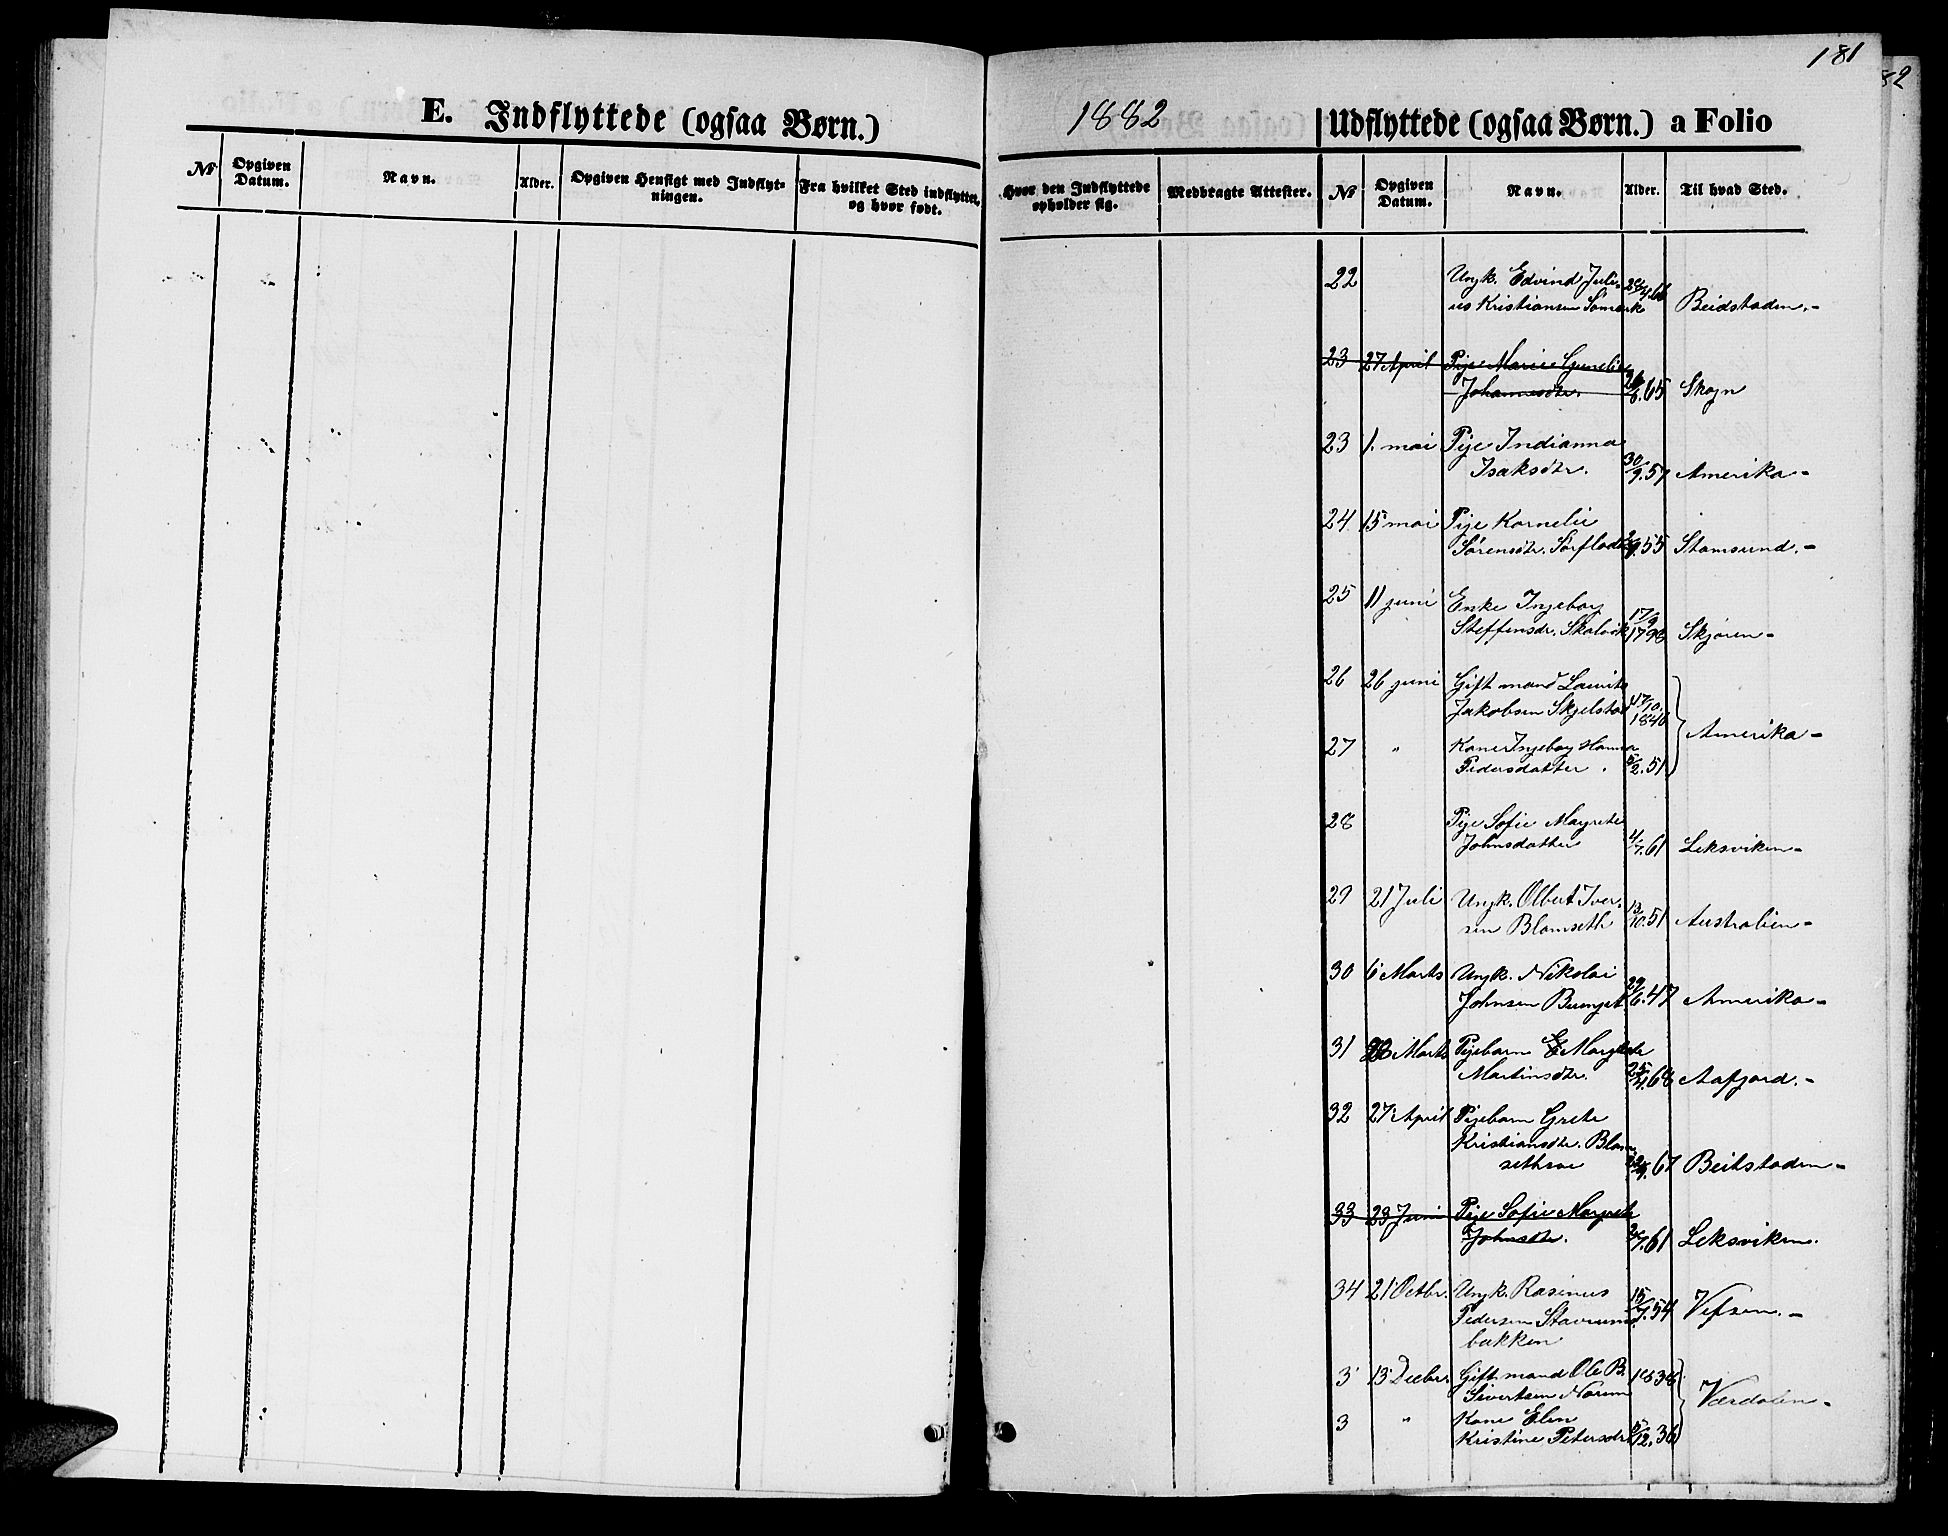 181
82
E. Indflyttede (ogsaa Børn.)
1882
Udflyttede (ogsaa Børn.) a Folio
No
Opgiven Datum.
Navn.
Alder.
Opgiven Hensigt med Indflyt-
ningen.
Fra hvilket Sted indflyttet,
og hvor født.
Hvor den Indflyttede
opholder sig.
Medbragte Attester.
No
Opgiven Datum.
Navn.
Alder.
Til hvad Sted.
22 Ungk. Edvind Juli-
us Kristiansen Sømark 4.66 Beidstaden.-
23 27 April Pige Marie Gunelie
Johannesdtr. 65 Skogn
23 1. mai Pige Indianna
Isaksdtr. 30/9.57 Amerika-
24 15 mai Pige Kornelie
Sørensdtr. Sørflad 9.55 Stamsund.-
25 11 juni Enke Ingeborg
Steffensdr. Skalvik 17/9 1798 Skjøren-
26 26 juni Gift mand Laurits
Jakobsen Skjelstad 17/10. 1846
Amerika-
27 " Kone Ingeborg Hanna
Pedersdatter. 5/2.51
28 Pige Sofie Magrete
Johnsdatter 4/7.61 Leksviken-
29 21 Juli Ungk. Olbert Iver-
sen Blomseth 13/10.51 Australien-
30 6 Marts Ungk. Nikolai
Johnsen 29/6.47 Amerika-
31 28 Marts Pigebarn E Magrete
Martinsdtr. 25/4.68 Aafjord.-
32 27 April Pigebarn Grete
Kristiansdtr. Blom-
sethvæ 67 Beitstaden-
33 23 Juni Pige Sofie Magrete
Johnsdtr. 7.61 Leksviken.
34 21 Octbr. Ungk. Rasinus
Pedersen Stavrum
bakken 15/7.54 Vefsen.-
3 13 Decbr. Gift mand Ole B.
Sivertsen Norum 1838
Værdalen-
3 " Kone Elen
Kristine Petersdr. 5/12.36